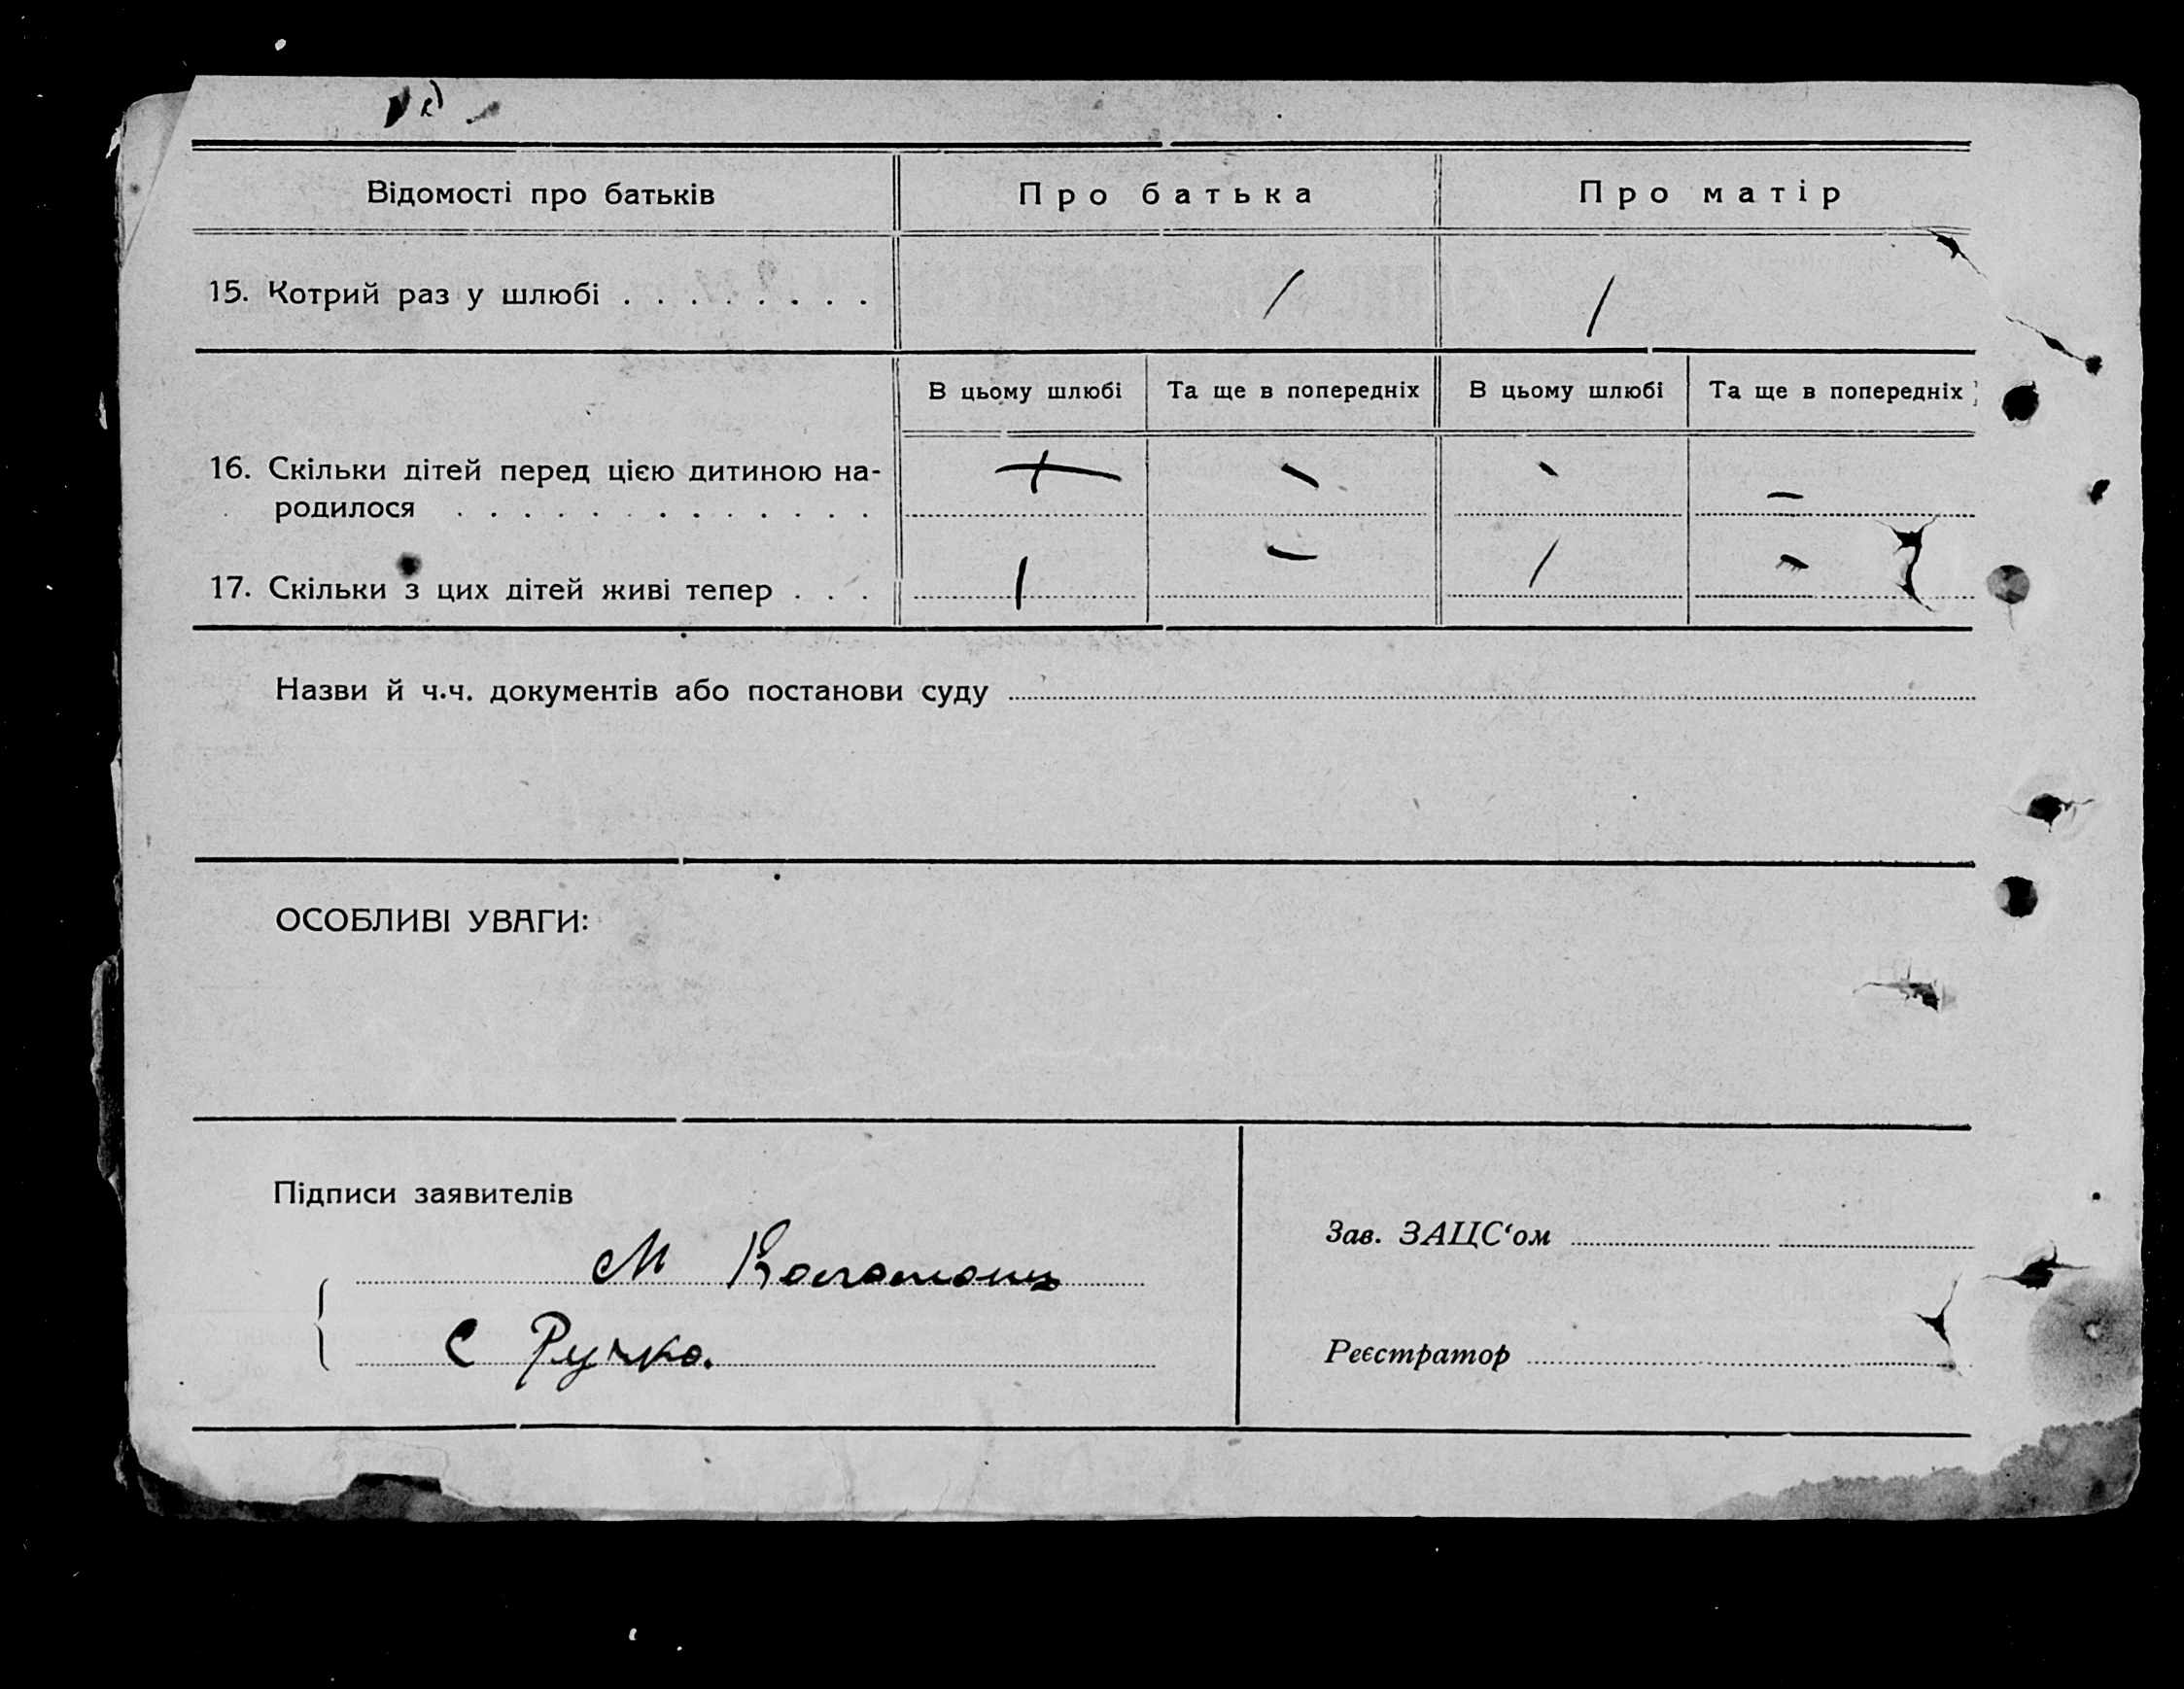 Відомості про батьків
Про батька
Про матір
15. Котрий раз у шлюбі . . . . . . . .
/
/
В цьому шлюбі
Та ще в попередніх
В цьому шлюбі
Та ще в попередніх
16. Скільки дітей перед цією дитиною на-
родилося . . . . . . . . . . . . .
-
-
-
17. Скільки з цих дітей живі тепер . . .
1
-
/
-
Назви й ч.ч. документів або постанови суду
ОСОБЛИВІ УВАГИ:
Підписи заявителів
М
С Ручка.
Зав. ЗАЦС‘ом
Реєстратор